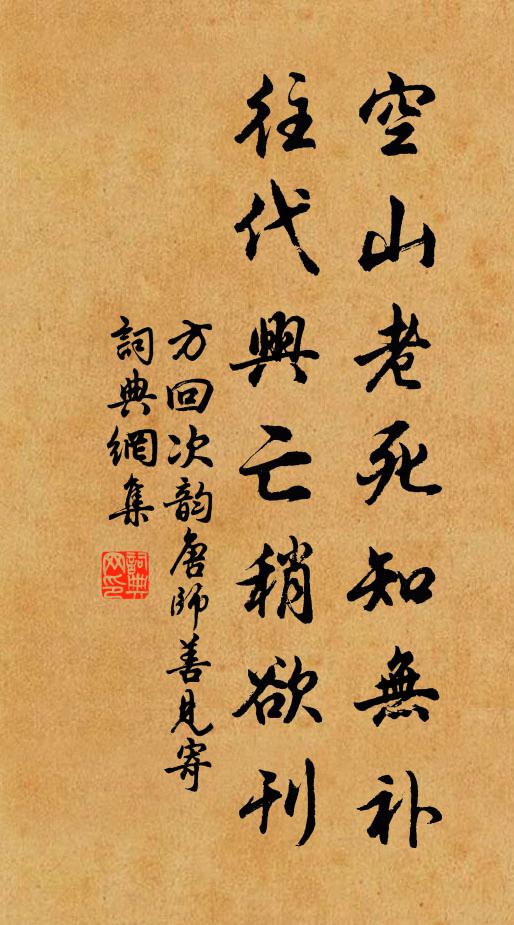 空山老死知無补
往代興亡稍欲刊
方回次韵唐師善見寄
詞典網集
詞典网印